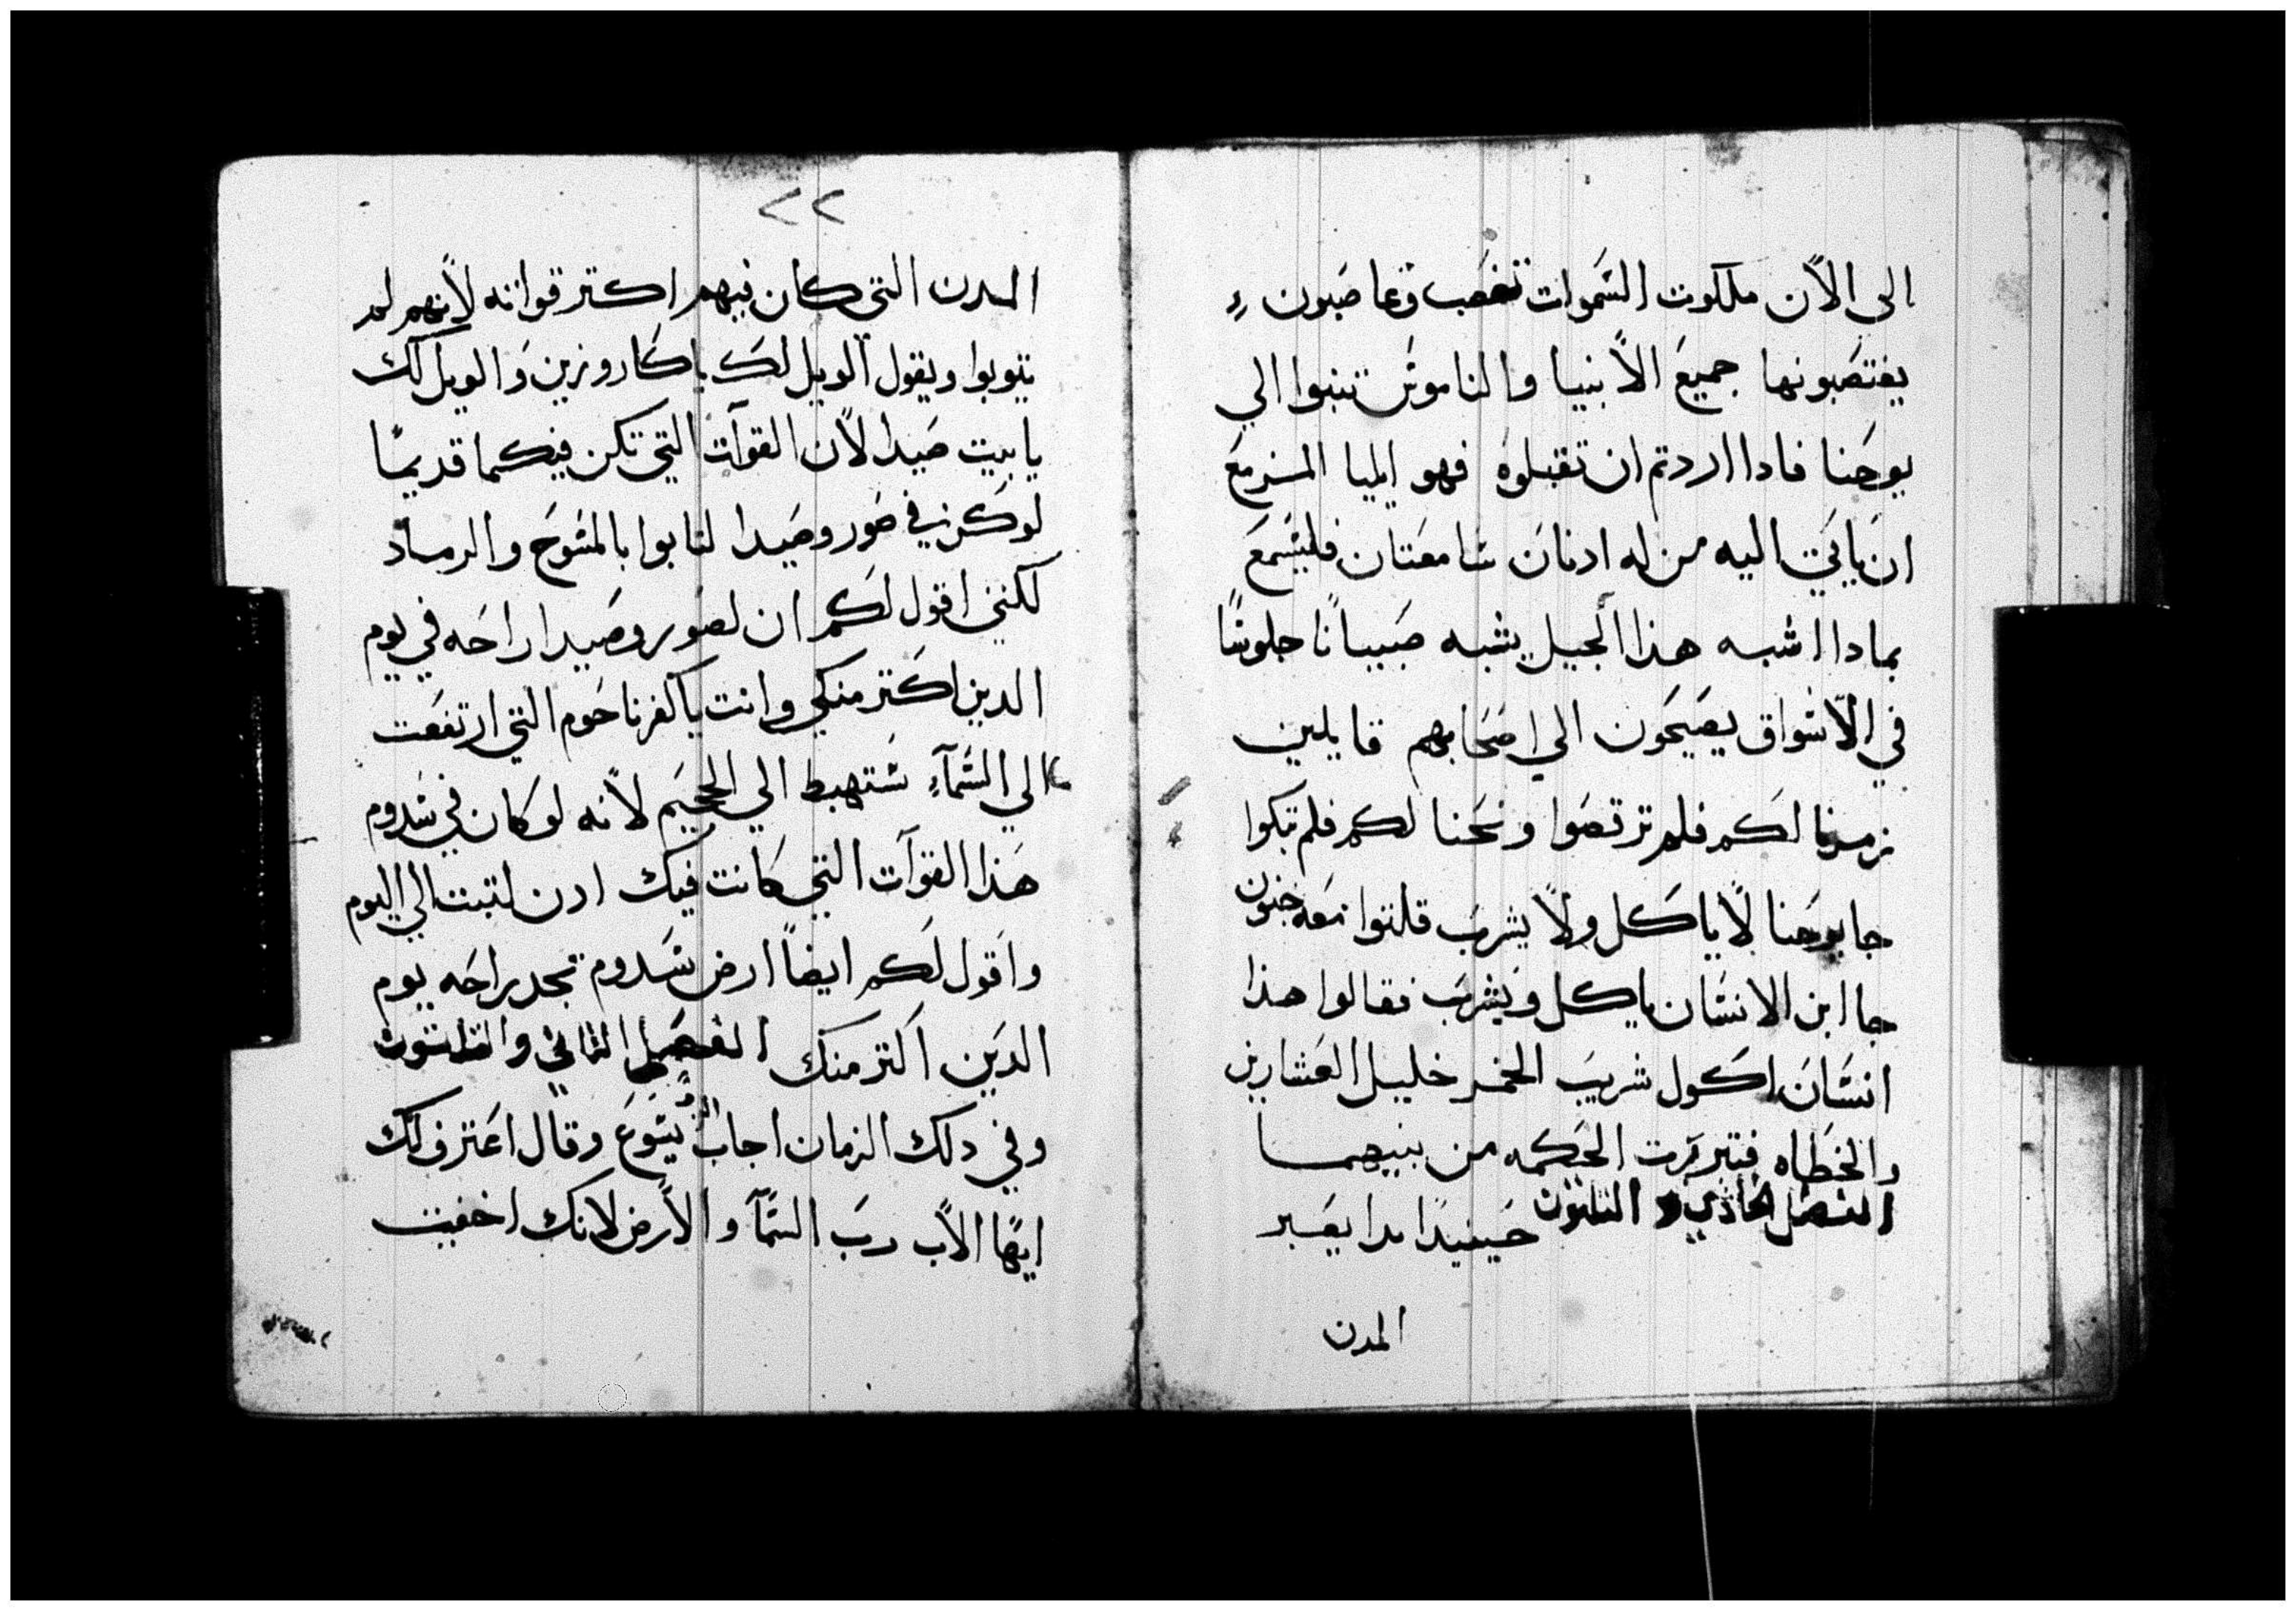 الى الاًن ملكوت السَموات تغصَب وغاصَبون
يغتصَبونها جميعَ الاًنبيا والناموس تنبوا الي
يوحَنا فادا اردتم ان تقبلوه فهو ايليا المزمعَ
ان ياتي اليه من له ادنان سَامعَتان فليسَمعَ
بمادا اشبه هذا الجيل يشبه صَبياناً جلوسًا
في الاسَواق يصَيحَون الي اصَحَابهم قايلين
زمرنا لكم فلم ترقصَوا ونحَنا لكم فلم تبكوا
جا يوحَنا لاً ياكل ولاً يشربَ قلتوا معَه جنون
جا ابن الانسَان ياكل ويشربَ فقالوا هذا
انسَان اكول شريبَ الخمر خليل العَشارين
والخطاه فتبررت الحَكمه من بنيهما
الفصَل الحَادي و التلتون حَينيدًا بدا يعَير
المدن
٢٢
المدن التي كان فيهم اكتر قواته لاًنهم لم
يتوبوا ويقول الويل لك يا كاروزين وَالويل لك
يا بيت صَيدا لاًن القوات التي تكن فيكما قديمًا
لو كن في صَور وصَيدا لتابوا بالمسَوحَ والرماد
لكنني اقول لكم ان لصَور وصَيدا راحَه في يوم
الدين اكتر منكي وانت يا كفرناحَوم التي ارتفعَت
الي السَمآءِ سَتهبط الي الجحَيم لاًنه لو كان في سَدوم
هَذا القوآت التي كانت فيك ادن لتبتت الي اليوم
واقول لكم ايضاً ارض سَدوم تجد راحَه يوم
الدين اكتر منك الفصَل التاني والتلتون
وفي دلك الزمان اجاب يسَوعَ وقال اعَترف لك
ايهًا الاًب ربَ السَمآ والاًرض لانك اخفيت